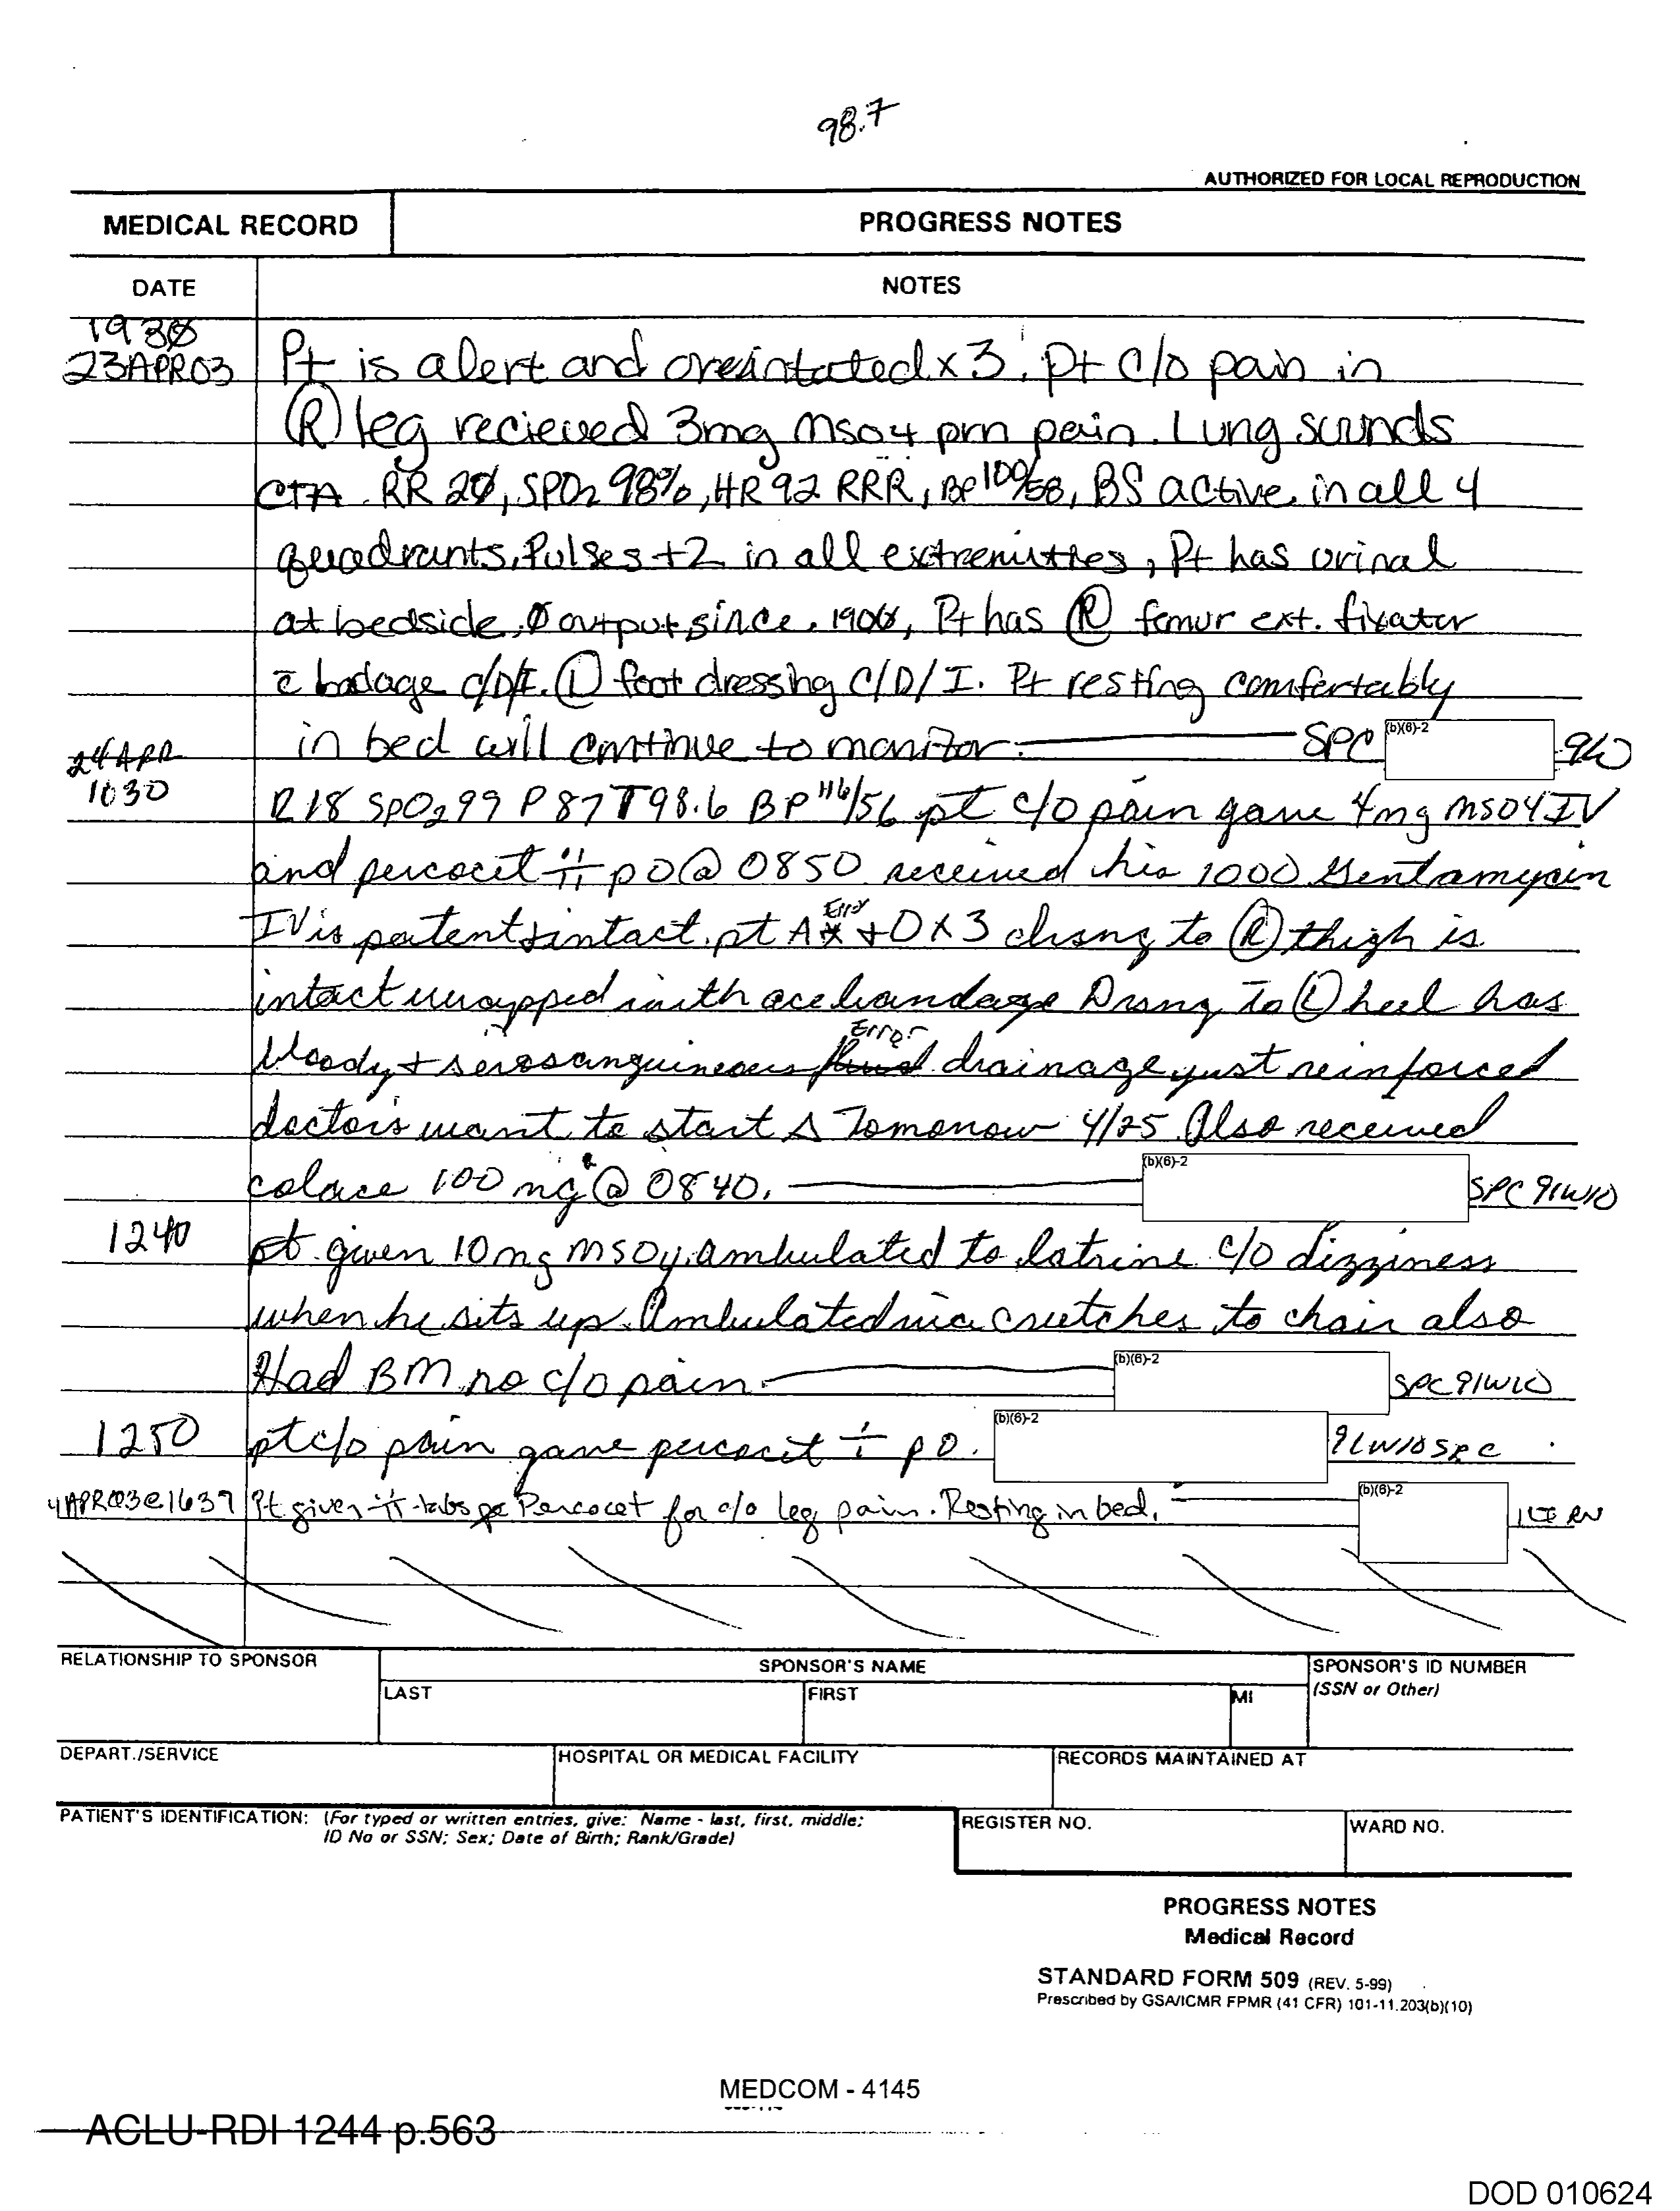 98.7
AUTHORIZED FOR LOCAL REPRODUCTION
MEDICAL RECORD PROGRESS NOTES
DATE NOTES
1930
23APR03 Pt is alert and oreintated x 3. pt c/o pain in
Ⓡ leg recieved 3mg MSO4 prn pain. Lung sounds
CTA. RR 20, SPO2 98%, HR 92 RRR, BP 100/58, BS active in all 4
quadrants, Pulses +2 in all extremitites, Pt has urinal
at bedside, Ø output since 1900, Pt has Ⓡ femur ext. fixater
c̄ badage c/D/I. Ⓛ foot dressing C/D/I. Pt resting comfertably
in bed will continue to monitor. SPC (b)(6)-2 91W
24 APR
1030 R 18 SPO2 99 P 87 T 98.6 BP 116/56 pt c/o pain gave 4mg MSO4 IV
and percocit ii po @ 0850 received his 1000 Gentamycin
IV is patent + intact. pt A Error + O x 3 drsng to Ⓡ thigh is
intact wrapped with ace bandage Drsng To Ⓛ heel has
bloody + serosanguineous Error drainage just reinforced
doctors want to start Δ Tomorrow 4/25. Also received
colace 100 mg @ 0840. (b)(6)-2 SPC 91W10
1240 pt given 10 mg MSO4, ambulated to latrine c/o dizziness
when he sits up. Ambulated via crutches to chair also
Had BM no c/o pain. (b)(6)-2 SPC 91W10
1250 pt c/o pain gave percocit i po. (b)(6)-2 91W10 SPC
4APR03@1637 Pt given ii tabs po Percocet for c/o leg pain. Resting in bed. (b)(6)-2 1LT RN
RELATIONSHIP TO SPONSOR SPONSOR'S NAME SPONSOR'S ID NUMBER
LAST FIRST MI (SSN or Other)
DEPART./SERVICE HOSPITAL OR MEDICAL FACILITY RECORDS MAINTAINED AT
PATIENT'S IDENTIFICATION: (For typed or written entries, give: Name - last, first, middle; REGISTER NO. WARD NO.
ID No or SSN; Sex; Date of Birth; Rank/Grade)
PROGRESS NOTES
Medical Record
STANDARD FORM 509 (REV. 5-99)
Prescribed by GSA/ICMR FPMR (41 CFR) 101-11.203(b)(10)
MEDCOM - 4145
ACLU-RDI 1244 p.563
DOD 010624